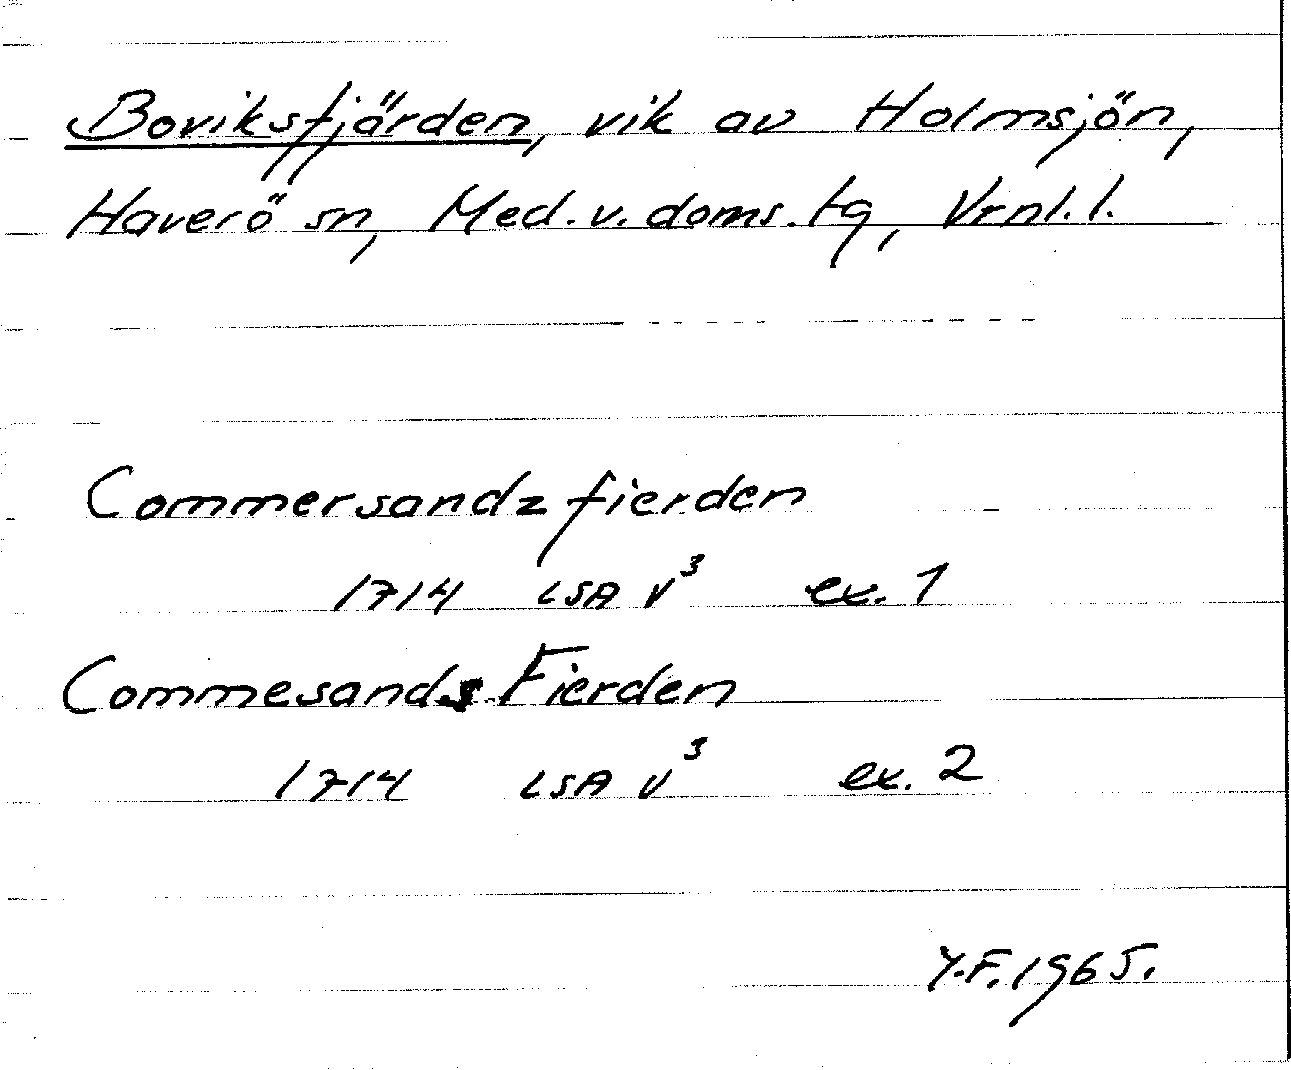 Boviksfjärden, vik av Holmsjön,
Haverö sn, Med. v. doms. tg, Vrnl. l.
Commersandz fierden
1714 LSA V³ ex. 1
Commesands Fierden
1714 LSA V³ ex. 2
Y.F. 1965.